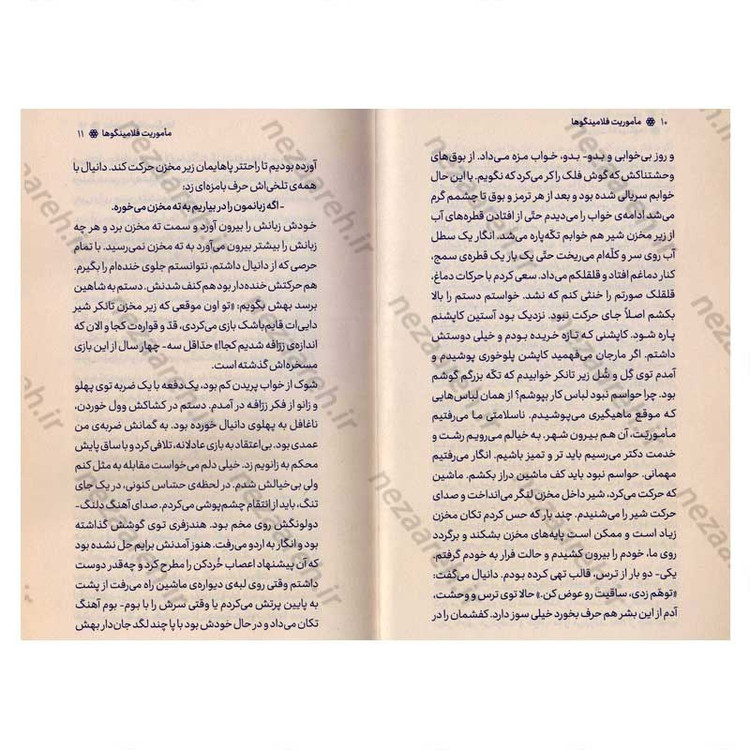 ۱۰ مأموریت فلامینگوها
و روز بی‌خوابی و بدو- بدو، خواب مزه می‌داد. از بوق‌های
وحشتناکش که گوش فلک را کر می‌کرد که نگویم. با این حال
خوابم سریالی شده بود و بعد از هر ترمز و بوق تا چشمم گرم
می‌شد ادامه‌ی خواب را می‌دیدم حتّی از افتادن قطره‌های آب
از زیر مخزن شیر هم خوابم تگه‌پاره می‌شد. انگار یک سطل
آب روی سر و کلّه‌ام می‌ریخت حتّی یک بار یک قطره‌ی سمج،
کنار دماغم افتاد و قلقلکم می‌داد. سعی کردم با حرکات دماغ،
قلقلک صورتم را خنثی کنم که نشد. خواستم دستم را بالا
بکشم اصلاً جای حرکت نبود. نزدیک بود آستین کاپشنم
پاره شود. کاپشنی که تازه خریده بودم و خیلی دوستش
داشتم. اگر مارجان می‌فهمید کاپشن پلوخوری پوشیدم و
آمدم توی گِل و شُل زیر تانکر خوابیدم که تگه بزرگم گوشم
بود. چرا حواسم نبود لباس کار بپوشم؟ از همان لباس‌هایی
که موقع ماهیگیری می‌پوشیدم. ناسلامتی ما می‌رفتیم
مأموریّت، آن هم بیرون شهر. به خیالم می‌رویم رشت و
خدمت دکتر می‌رسیم باید تر و تمیز باشیم. انگار می‌رفتیم
مهمانی. حواسم نبود باید کف ماشین دراز بکشم. ماشین
که حرکت می‌کرد، شیر داخل مخزن لنگر می‌انداخت و صدای
حرکت شیر را می‌شنیدم. چند بار که حس کردم تکان مخزن
زیاد است و ممکن است پایه‌های مخزن بشکند و برگردد
روی ما، خودم را بیرون کشیدم و حالت فرار به خودم گرفتم.
یکی- دو بار از ترس، قالب تهی کرده بودم. دانیال می‌گفت:
«توهّم زدی، ساقیت رو عوض کن.» حالا توی ترس و وحشت،
آدم از این بشر هم حرف بخورد خیلی سوز دارد. کفشمان را در
مأموریت فلامینگوها ۱۱
آورده بودیم تا راحتتر پاهایمان زیر مخزن حرکت کند. دانیال با
همه‌ی تلخی‌اش حرف بامزه‌ای زد:
- اگه زبانمون را در بیاریم به ته مخزن می‌خوره.
خودش زبانش را بیرون آورد و سمت ته مخزن برد و هر چه
زبانش را بیشتر بیرون می‌آورد به ته مخزن نمی‌رسید. با تمام
حرصی که از دانیال داشتم، نتوانستم جلوی خنده‌ام را بگیرم.
هم حرکتش خنده‌دار بود هم کنف شدنش. دستم به شاهین
برسد بهش بگویم: «تو اون موقعی که زیر مخزن تانکر شیر
دایی‌ات قایم‌باشک بازی می‌کردی، قدّ و قواره‌ت کجا و الان که
اندازه‌ی زرّافه شدیم کجا!» حدّاقل سه- چهار سال از این بازی
مسخره‌اش گذشته است.
شوک از خواب پریدن کم بود، یک‌دفعه با یک ضربه توی پهلو
و زانو از فکر زرّافه در آمدم. دستم در کشاکش وول خوردن،
ناغافل به پهلوی دانیال خورده بود. به گمانش ضربه‌ی من
عمدی بود. بی‌اعتقاد به بازی عادلانه، تلافی کرد و با ساق پایش
محکم به زانویم زد. خیلی دلم می‌خواست مقابله به مثل کنم
ولی بی‌خیالش شدم. در لحظه‌ی حسّاس کنونی، در یک جای
تنگ، باید از انتقام چشم‌پوشی می‌کردم. صدای آهنگ دلنگ-
دولونگش روی مخم بود. هندزفری توی گوشش گذاشته
بود و انگار به اردو می‌رفت. هنوز آمدنش برایم حل نشده بود
که آن پیشنهاد اعصاب خُردکن را مطرح کرد و چه‌قدر دوست
داشتم وقتی روی لبه‌ی دیواره‌ی ماشین راه می‌رفت از پشت
به پایین پرتش می‌کردم یا وقتی سرش را با بوم- بوم آهنگ
تکان می‌داد و در حال خودش بود با پا چند لگد جان‌دار بهش
nezaareh.ir
nezaareh.ir
nezaareh.ir
nezaareh.ir
nezaareh.ir
nezaareh.ir